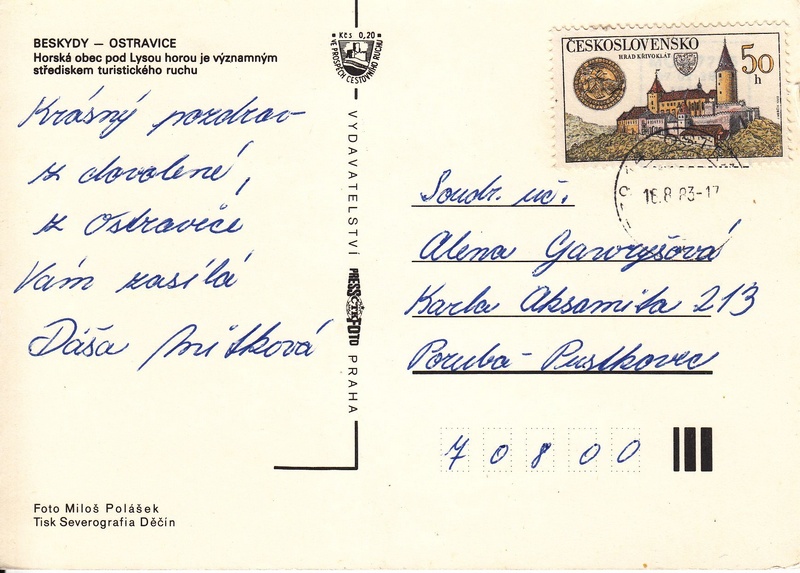 BESKYDY — OSTRAVICE
Horská obec pod Lysou horou je významným
střediskem turistického ruchu
Krásný pozdrav
z dovolené,
z Ostravice
Vám zasílá
Dáša Mitková
Foto Miloš Polášek
Tisk Severografia Děčín
Kčs 0,20
VE PROSPĚCH CESTOVNÍHO RUCHU
VYDAVATELSTVÍ
PRESSFOTO
ČTK
PRAHA
ČESKOSLOVENSKO
HRAD KŘIVOKLÁT
50
h
16.8.83-17
Soudr. uč.
Alena Gavryšová
Karla Aksamita 213
Poruba-Pustkovec
70800